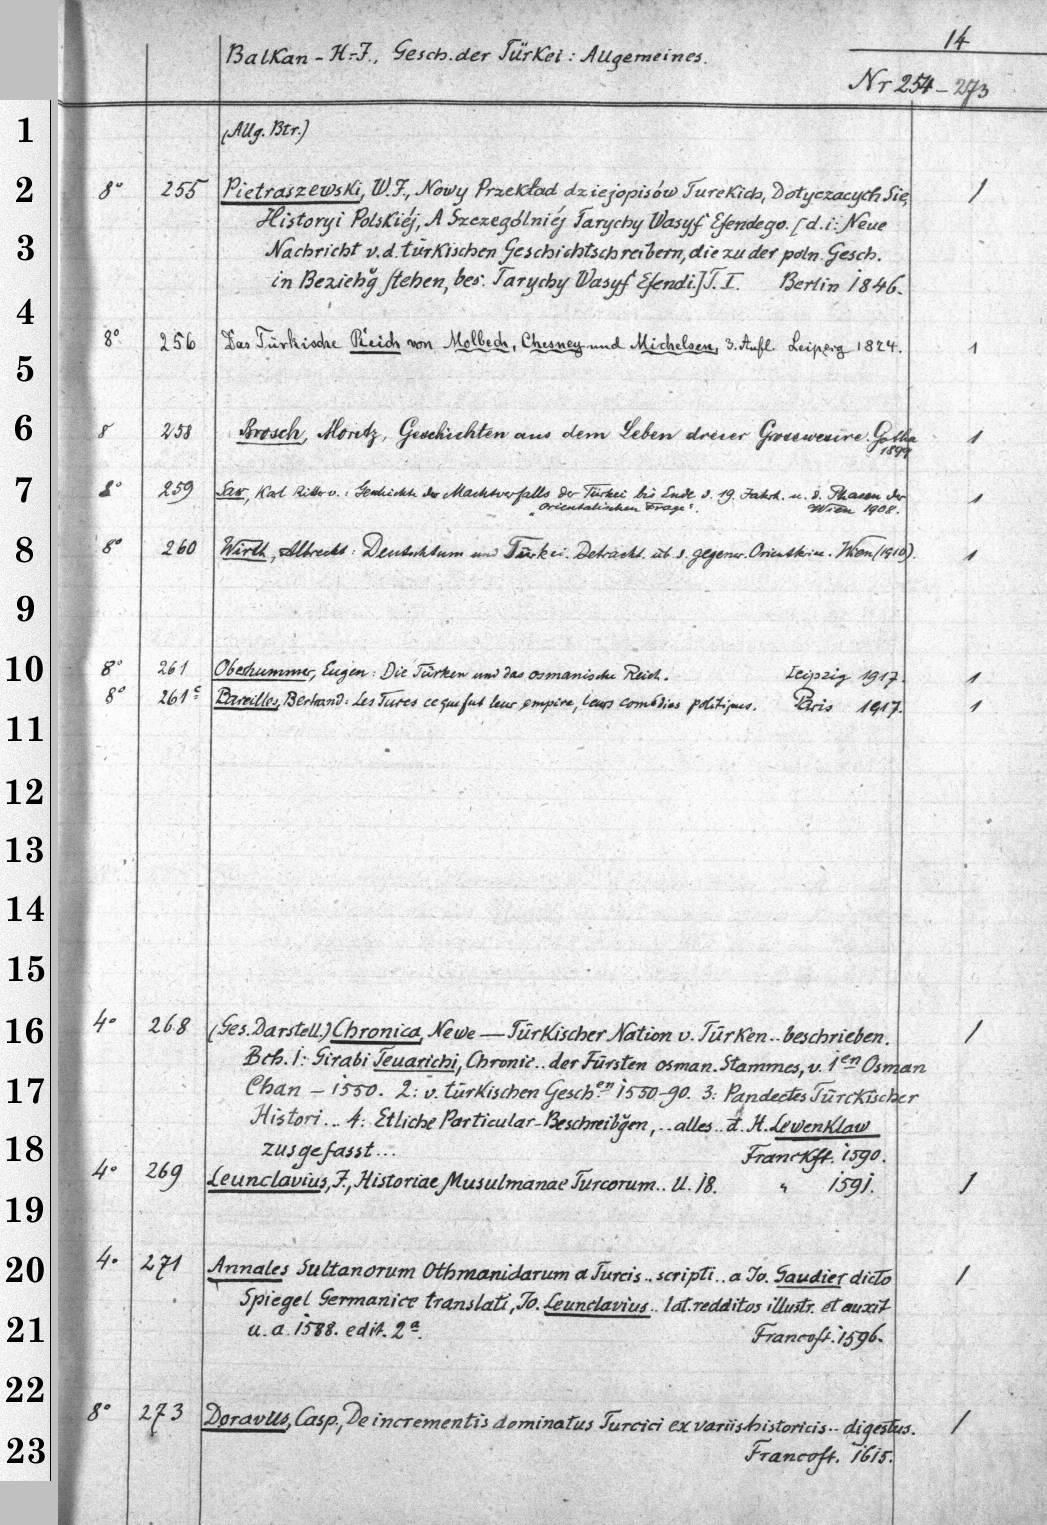 14
Balkan - H-J., Gesch. der Türkei : Allgemeines.
Nr 254 - 273
1
(Allg. Btr.)
2 8° 255 Pietraszewski, W.J., Nowy Przekład dziejopisów Tureckich, Dotyczacych Się, 1
Historyi Polskiéj, A Szczególniéj Tarychy Wasyf Efendego. [d.i: Neue
3 Nachricht v.d. türkischen Geschichtschreibern, die zu der poln. Gesch.
in Beziehg stehen, bes: Tarychy Wasyf Efendi.] T. I. Berlin 1846.
4
8° 256 Das Türkische Reich von Molbech, Chesney und Michelsen, 3. Aufl. Leipzig 1824. 1
5
6 8 258 Brosch, Moritz, Geschichten aus dem Leben dreier Grosswesire. Gotha 1
1899
7 8° 259 Sax, Karl Ritter v.: Geschichte des Machtverfalls der Türkei bis Ende d. 19. Jahrh. u. d. Phasen der 1
"orientalischen Frage". Wien 1908.
8 8° 260 Wirth, Albrecht: Deutschtum und Türkei. Betracht. üb d. gegenw. Orientkrise. Wien (1910). 1
9
10 8° 261 Oberhummer, Eugen: Die Türken und das osmanische Reich. Leipzig 1917. 1
8° 261c Bareilles, Bertrand: Les Turcs ce que fut leur empire, leurs comédies politiques. Paris 1917. 1
11
12
13
14
15
16 4° 268 (Ges. Darstell.) Chronica, Newe — Türkischer Nation v. Türken .. beschrieben. 1
Bch. 1: Girabi Teuarichi, Chronic .. der Fürsten osman. Stammes, v. 1en Osman
17 Chan - 1550. 2: v. türkischen Geschen 1550-90. 3: Pandectes Türckischer
Histori ... 4: Etliche Particular-Beschreibgen, .. alles .. d. H. Lewenklaw
18 zusgefasst ... Franckft. 1590.
4° 269 Leunclavius, J., Historiae Musulmanae Turcorum .. ll. 18. " 1591. 1
19
20 4° 271 Annales Sultanorum Othmanidarum a Turcis .. scripti .. a Jo. Gaudier dicto 1
Spiegel Germanice translati, Jo. Leunclavius .. lat. redditos illustr. et auxit
21 u. a. 1588. edit. 2a. Francoft. 1596.
22
8° 273 Doravius, Casp., De incrementis dominatus Turcici ex variis historicis .. digestus. 1
23 Francoft. 1615.